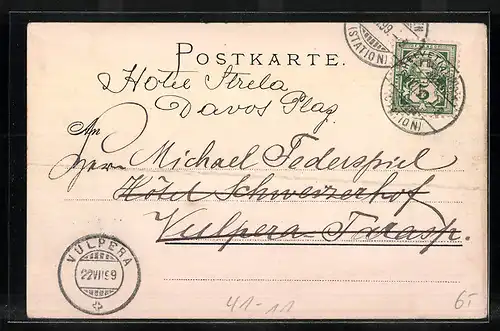 POSTKARTE.
Hotel Strela
Davos Plaz
An
Herr Michael Federspiel
Hôtel Schweizerhof
Vulpera-Tarasp.
(STATION)
99
5
(STATION)
VULPERA
22 VII 99
41-11